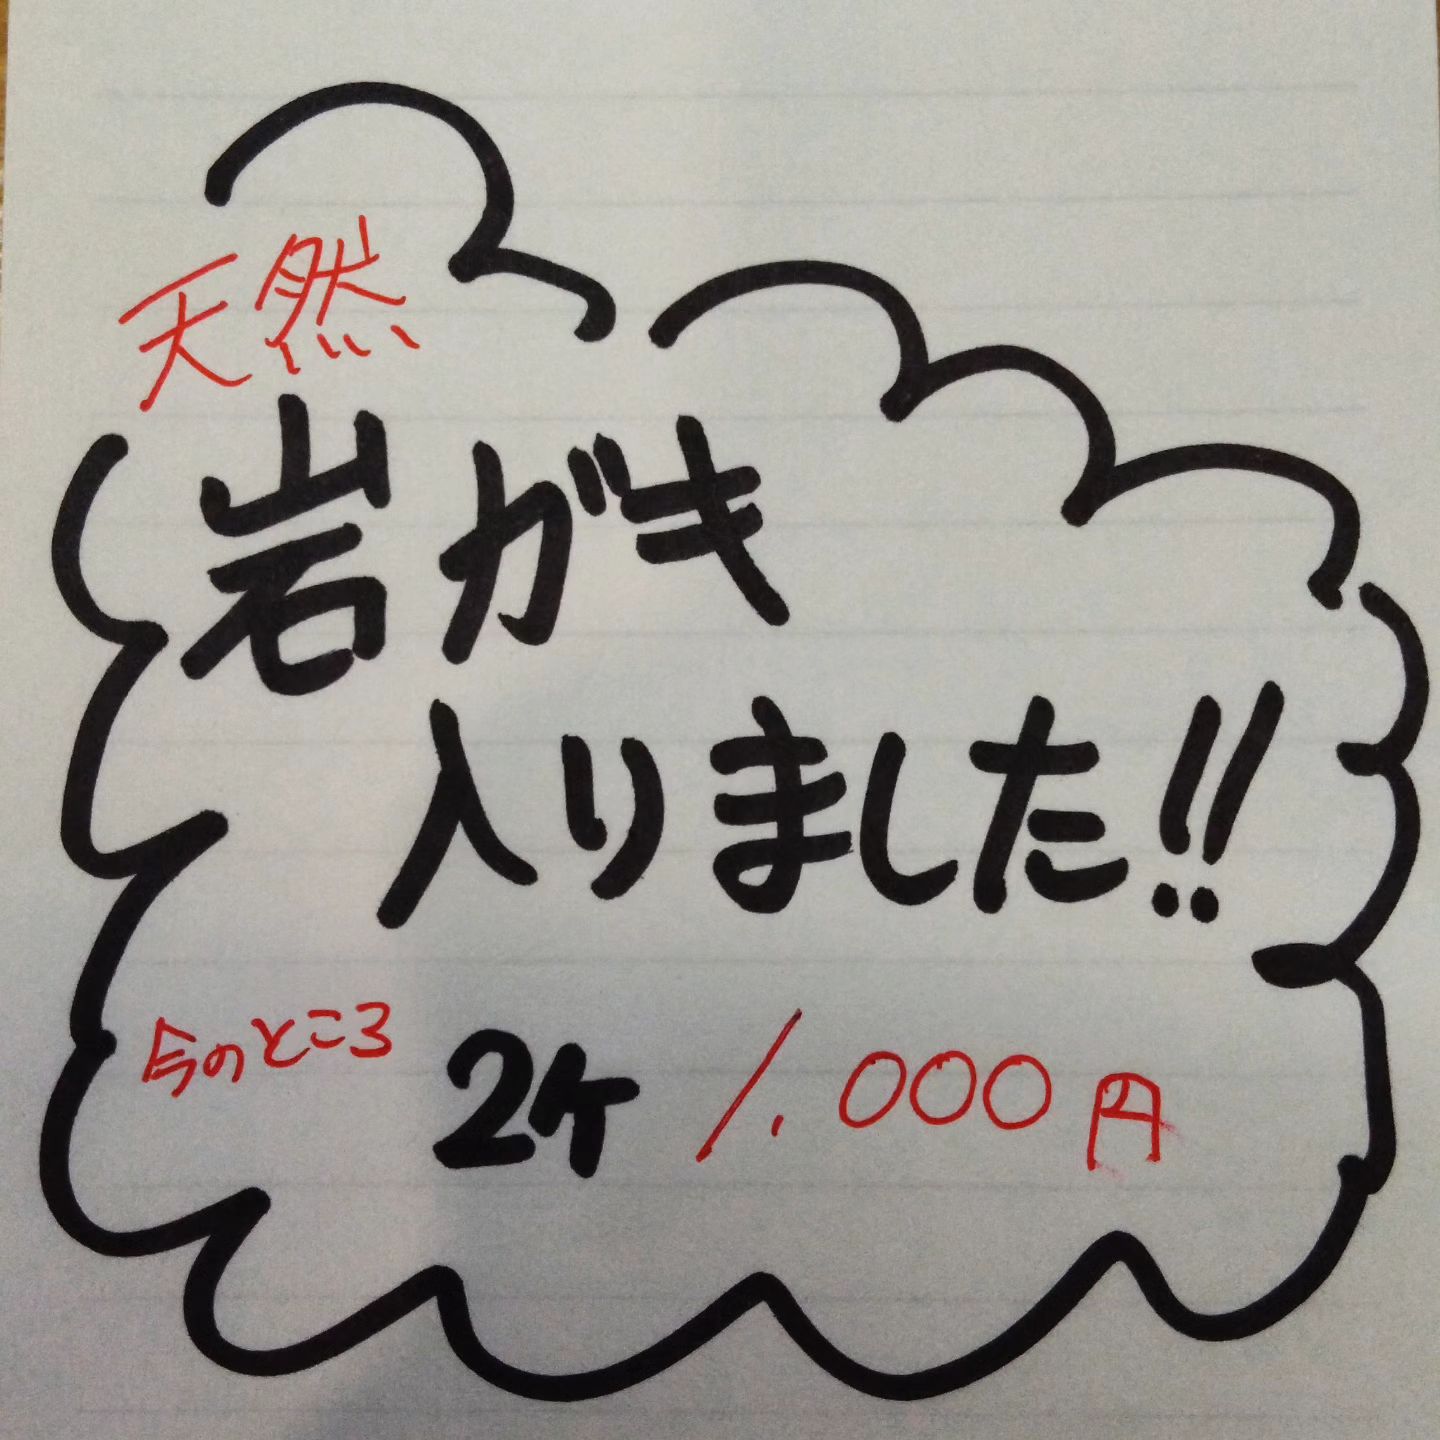 天然
岩ガキ
入りました!!
今のところ 2ヶ 1.000円